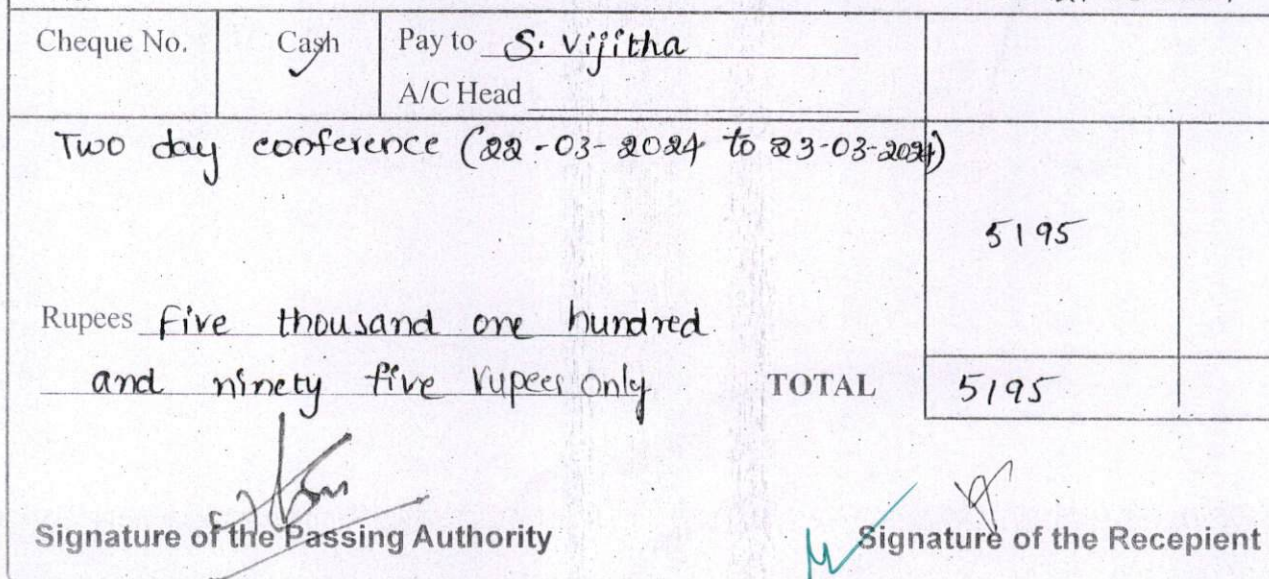 Cheque No. Cash Pay to S. Vijitha
A/C Head
Two day conference (22-03-2024 to 23-03-2024)
5195
Rupees Five thousand one hundred
and ninety five rupees only TOTAL 5195
Signature of the Passing Authority Signature of the Recepient